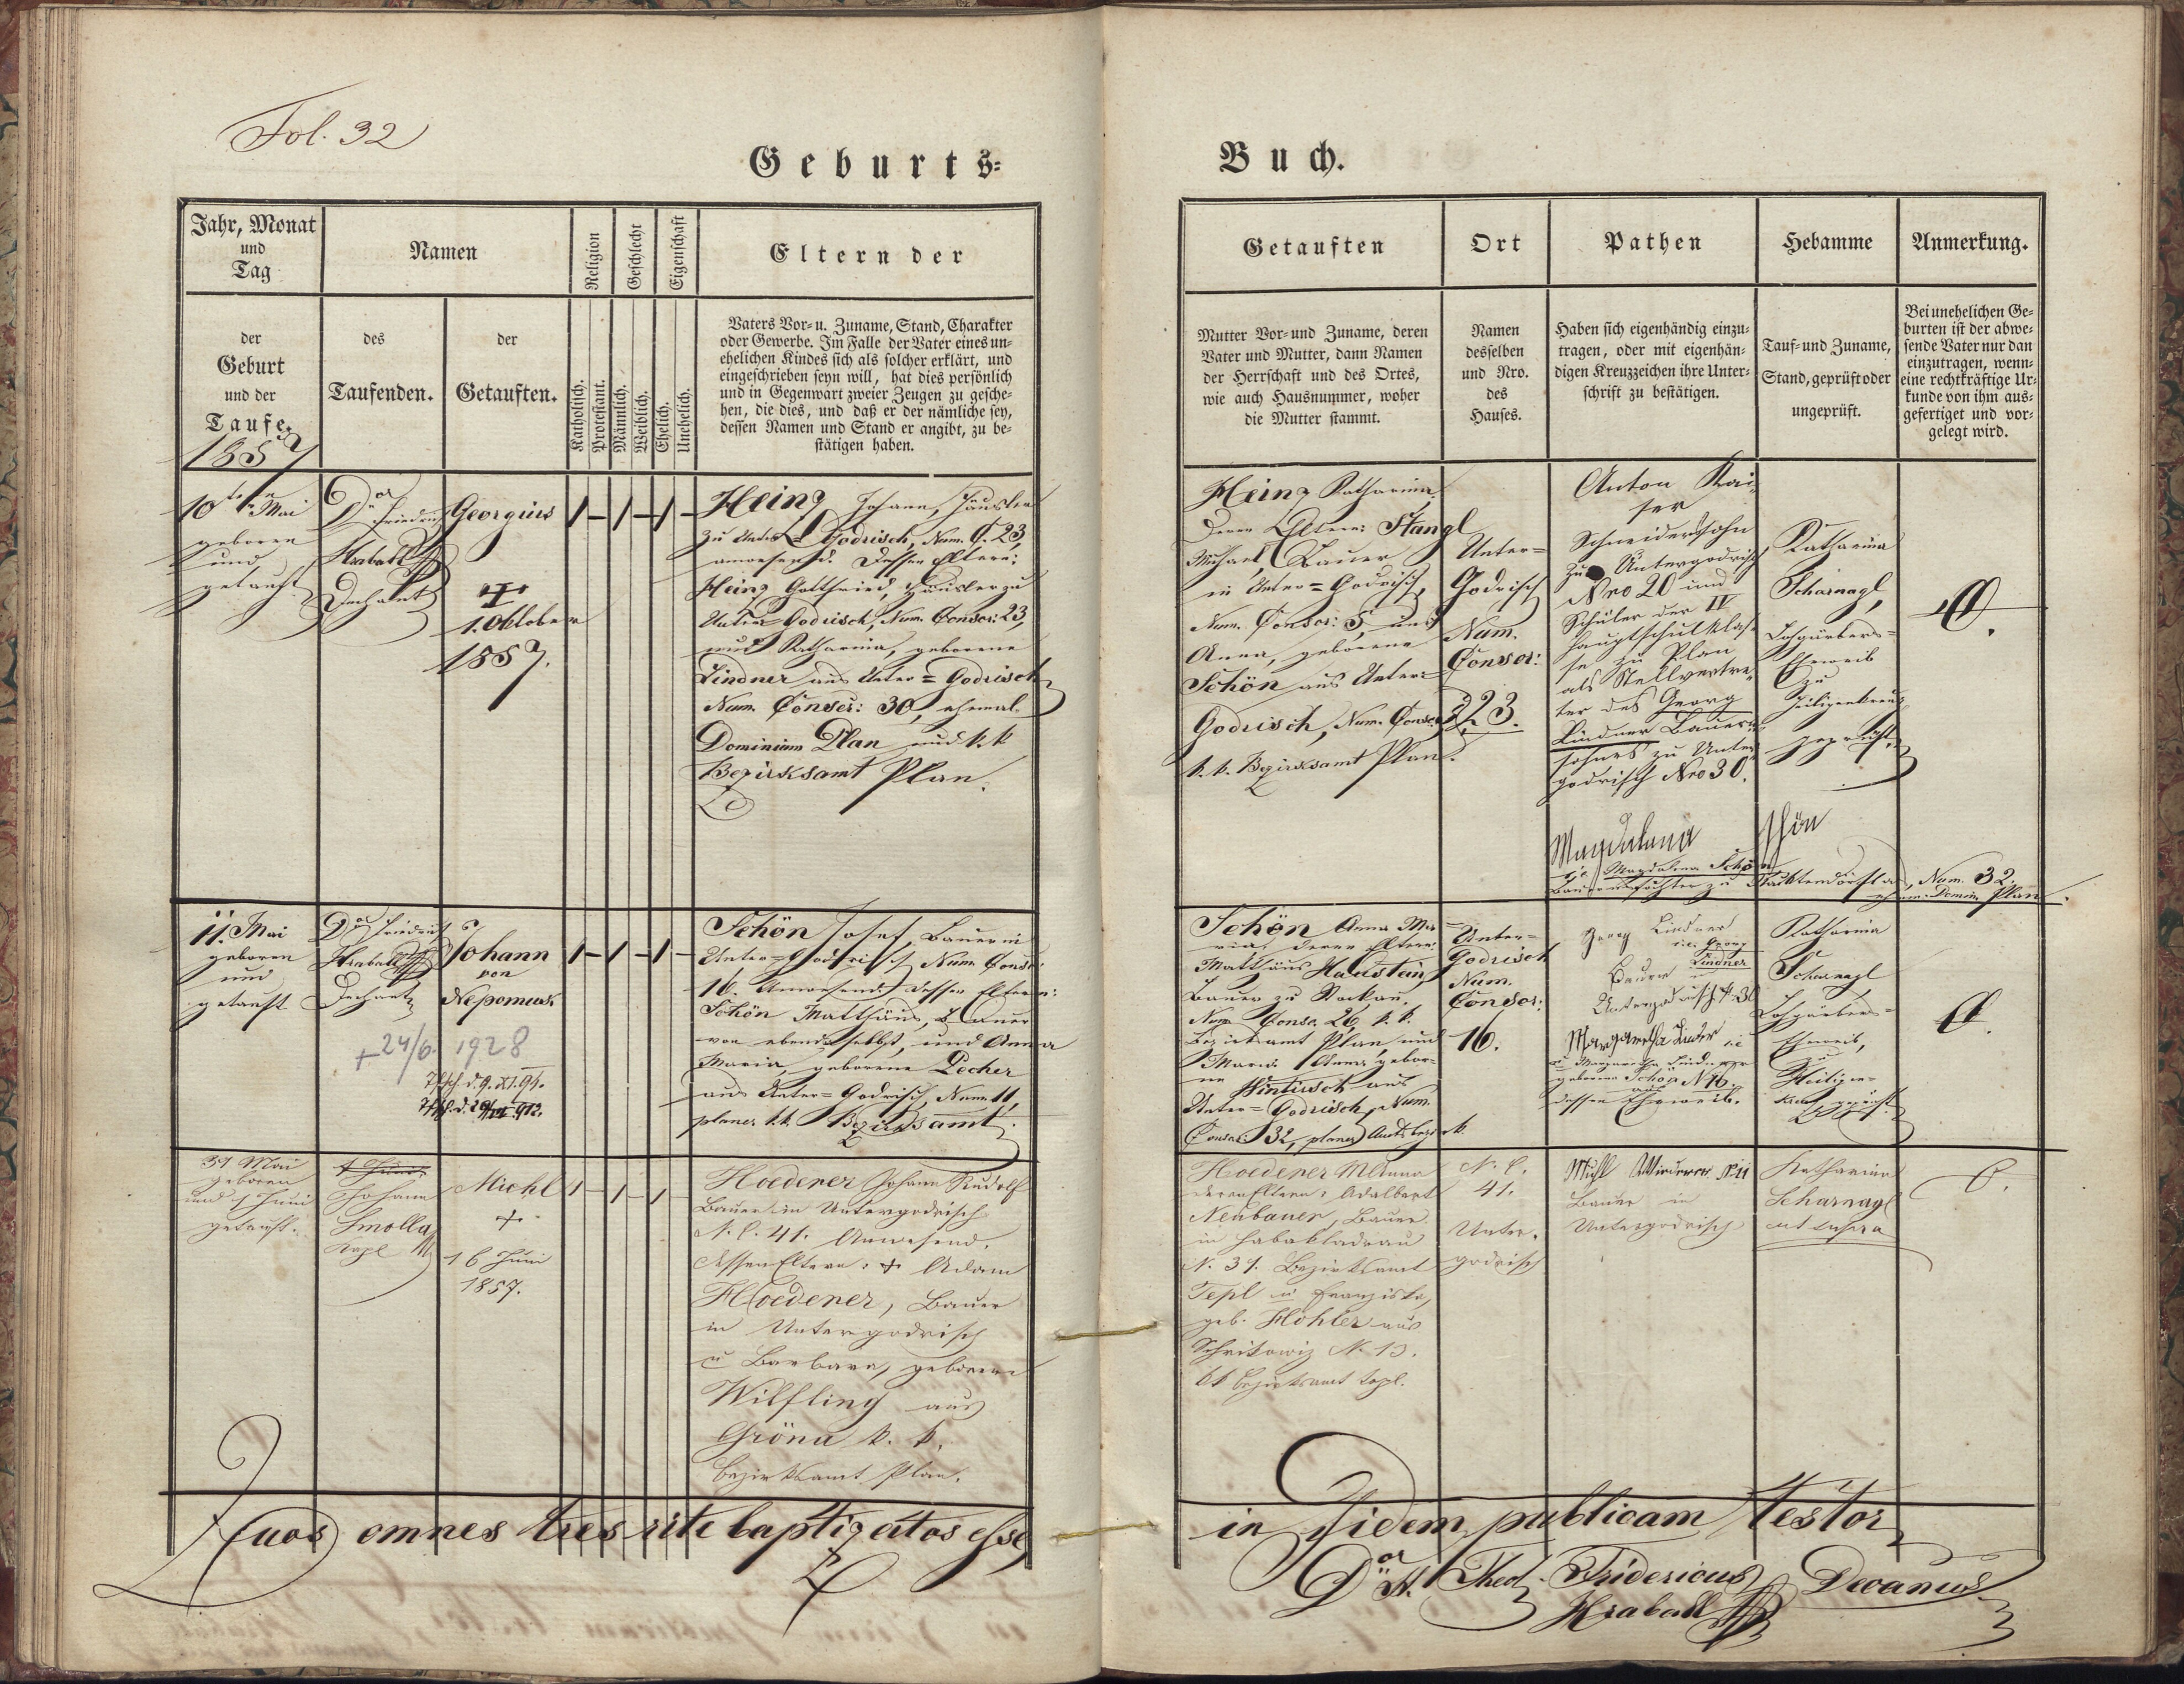 Fol. 32
Geburts-
Buch.
Jahr, Monat
und
Tag
Namen
Religion
Geschlecht
Eigenschaft
Eltern der
der
Geburt
und der
Taufe.
1857
des
Taufenden.
der
Getauften.
Katholisch.
Protestant.
Männlich.
Weiblich.
Ehelich.
Unehelich.
Vaters Vor- u. Zuname, Stand, Charakter
oder Gewerbe. Im Falle der Vater eines un-
ehelichen Kindes sich als solcher erklärt, und
eingeschrieben seyn will, hat dies persönlich
und in Gegenwart zweier Zeugen zu gesche-
hen, die dies, und daß er der nämliche sey,
dessen Namen und Stand er angibt, zu be-
stätigen haben.
Getauften
Ort
Pathen
Hebamme
Anmerkung.
Mutter Vor- und Zuname, deren
Vater und Mutter, dann Namen
der Herrschaft und des Ortes,
wie auch Hausnummer, woher
die Mutter stammt.
Namen
desselben
und Nro.
des
Hauses.
Haben sich eigenhändig einzu-
tragen, oder mit eigenhän-
digen Kreuzzeichen ihre Unter-
schrift zu bestätigen.
Tauf- und Zuname,
Stand, geprüft oder
ungeprüft.
Bei unehelichen Ge-
burten ist der abwe-
sende Vater nur dan
einzutragen, wenn-
eine rechtkräftige Ur-
kunde von ihm aus-
gefertiget und vor-
gelegt wird.
10ten Mai
geboren
und
getauft
Dor Friedrich
Hraball
Dechant
Georgius
1. Oktober
1857.
Heinz Johann, Häusler
zu Unter-Godrisch, Num. C. 23,
anwesend. Dessen Eltern:
Heinz Gottfried, Häusler zu
Unter-Godrisch, Num. Conscr: 23,
und Katharina, geborene
Lindner aus Unter-Godrisch
Num. Conscr: 30, ehemal.
Dominium Plan und k. k.
Bezirksamt Plan.
Heinz Katharina
Deren Eltern: Stangl
Michael, Bauer
in Unter-Godrisch,
Num. Conscr: 5, und
Anna, geborene
Schön aus Unter-
Godrisch, Num. Conscr.
k. k. Bezirksamt Plan.
Unter-
Godrisch
Num.
Conscr:
23.
Anton Kai-
ser
Schneiderssohn
zu Untergodrisch
Nro 20 und
Schüler der IV
Hauptschulklas-
se zu Plan
als Stellvertre-
ter des Georg
Lindner Bauern-
sohnes zu Unter-
godrisch Nro 30.
Magdalena Schön
Magdalena Schön
Bauernstochter zu, Num. 32.
Domin. Plan.
Katharina
Scharnagl,
Eheweib
zu
Heiligenkreuz
geprüft.
11. Mai
geboren
und
getauft
Dor Friedrich
Hraball
Dechant
Johann
von
Nepomuk
+ 24/6. 1928
Schön Josef, Bauer in
Unter-Godrisch Num Conscr:
16. Anwesend. Dessen Eltern:
Schön Matthäus, Bauer
von ebendaselbst, und Anna
Maria, geborene Pecher
aus Unter-Godrisch, Num. 11,
planer k. k. Bezirksamt.
Schön Anna Ma-
ria, deren Eltern:
Matthäus Haustein,
Bauer zu
Num. Conscr. 26, k. k.
Bezirksamt Plan, und
Maria Anna gebor-
ne Hintisch aus
Unter-Godrisch, Num.
Conscr: 32, planer Amtsbezirk.
Unter-
Godrisch
Num.
Conscr:
16.
Georg Lindner
i. e. Georg
Lindner
Bauer
Untergodrisch N. 30
Margaretha Lindner
geborene Schön N 16.
dessen Eheweib.
Katharina
Scharnagl
Eheweib,
zu
Heiligen-
kreuz geprüft.
31 Mai
geboren
und 1 Juni
getauft.
Johann
Smolla
Kapl
Michl
+
16 Juni
1857.
Hoedener Johann Rudolf
Bauer in Untergodrisch
N. C. 41. Anwesend.
Dessen Eltern: + Adam
Hoedener, Bauer
in Untergodrisch
u Barbara, geborene
Wilfling aus
Gröna k. k.
Bezirksamt Plan.
Hoedener MAnna
deren Eltern: Adalbert
Neubauer, Bauer
in Habakladrau
N. 31. Bezirksamt
Tepl u Franziska,
geb. Höhler aus
Schrikowiz N. 13.
kk Bezirksamt Tepl.
N. C.
41.
Unter-
godrisch
Bauer in
Untergodrisch
Katharina
Scharnagl
ut supra
Quos omnes tres rite baptizatos esse
in fidem publicam testor
Dor St. Theol. Fridericus Decanus
Hraball